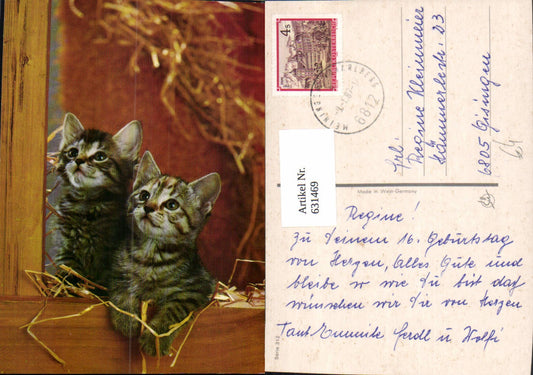 4 S
REPUBLIK ÖSTERREICH
6812
Frl.
Regine Kleinmeier
Kämmerlestr. 23
6805 Gisingen
Made in West-Germany
Artikel Nr.
631469
Regine!
Zu Deinem 16. Geburtstag
von Herzen, Alles Gute und
bleibe so wie Du bist daß
wünschen wir Dir von Herzen
Tante Ferdl u Wolfi
Serie 312